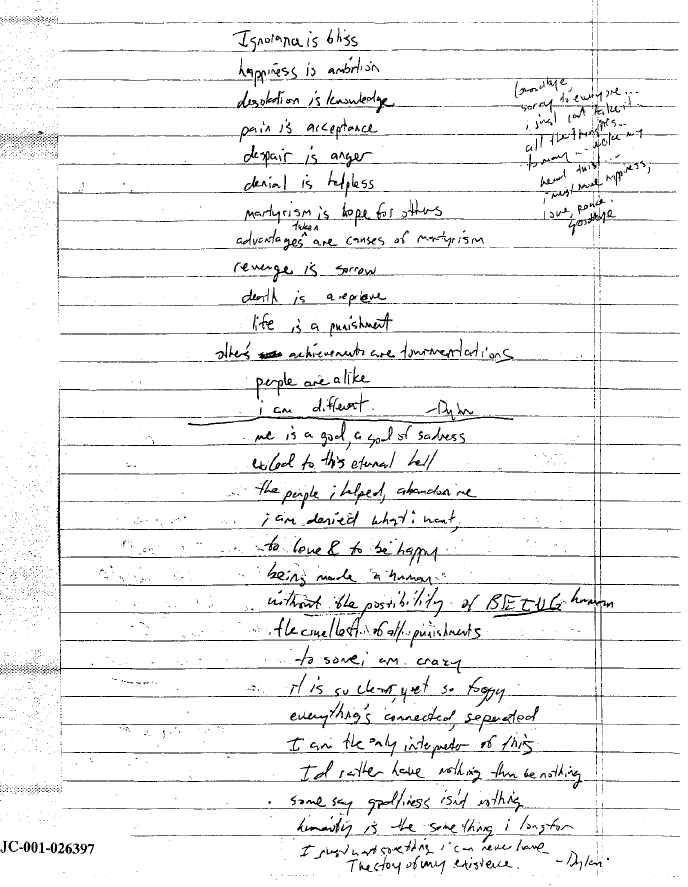 Ignorance is bliss
happiness is ambition
desolation is knowledge
pain is acceptance
despair is anger
denial is helpless
martyrism is hope for others
advantages taken are causes of martyrism
revenge is sorrow
death is a reprieve
life is a punishment
other's achievements are tourmentations
people are alike
i am different. -Dylan
me is a god, a god of sadness
exiled to this eternal hell
the people i helped, abandon me
i am denied what i want,
to love & to be happy
being made a human
without the possibility of BEING human
the cruellest of all punishments
to some i am crazy
it is so clear, yet so foggy
everything's connected, separated
I am the only interpreter of this
I'd rather have nothing than be nothing
some say godliness isn't nothing
humanity is the something i long for
I just want something i can never have
The story of my existence. -Dylan
Goodbye,
sorry to everyone...
i just cant take it...
all the thoughts...
to many ... make my
head twist...
i must have happiness,
love, peace.
Goodbye
JC-001-026397